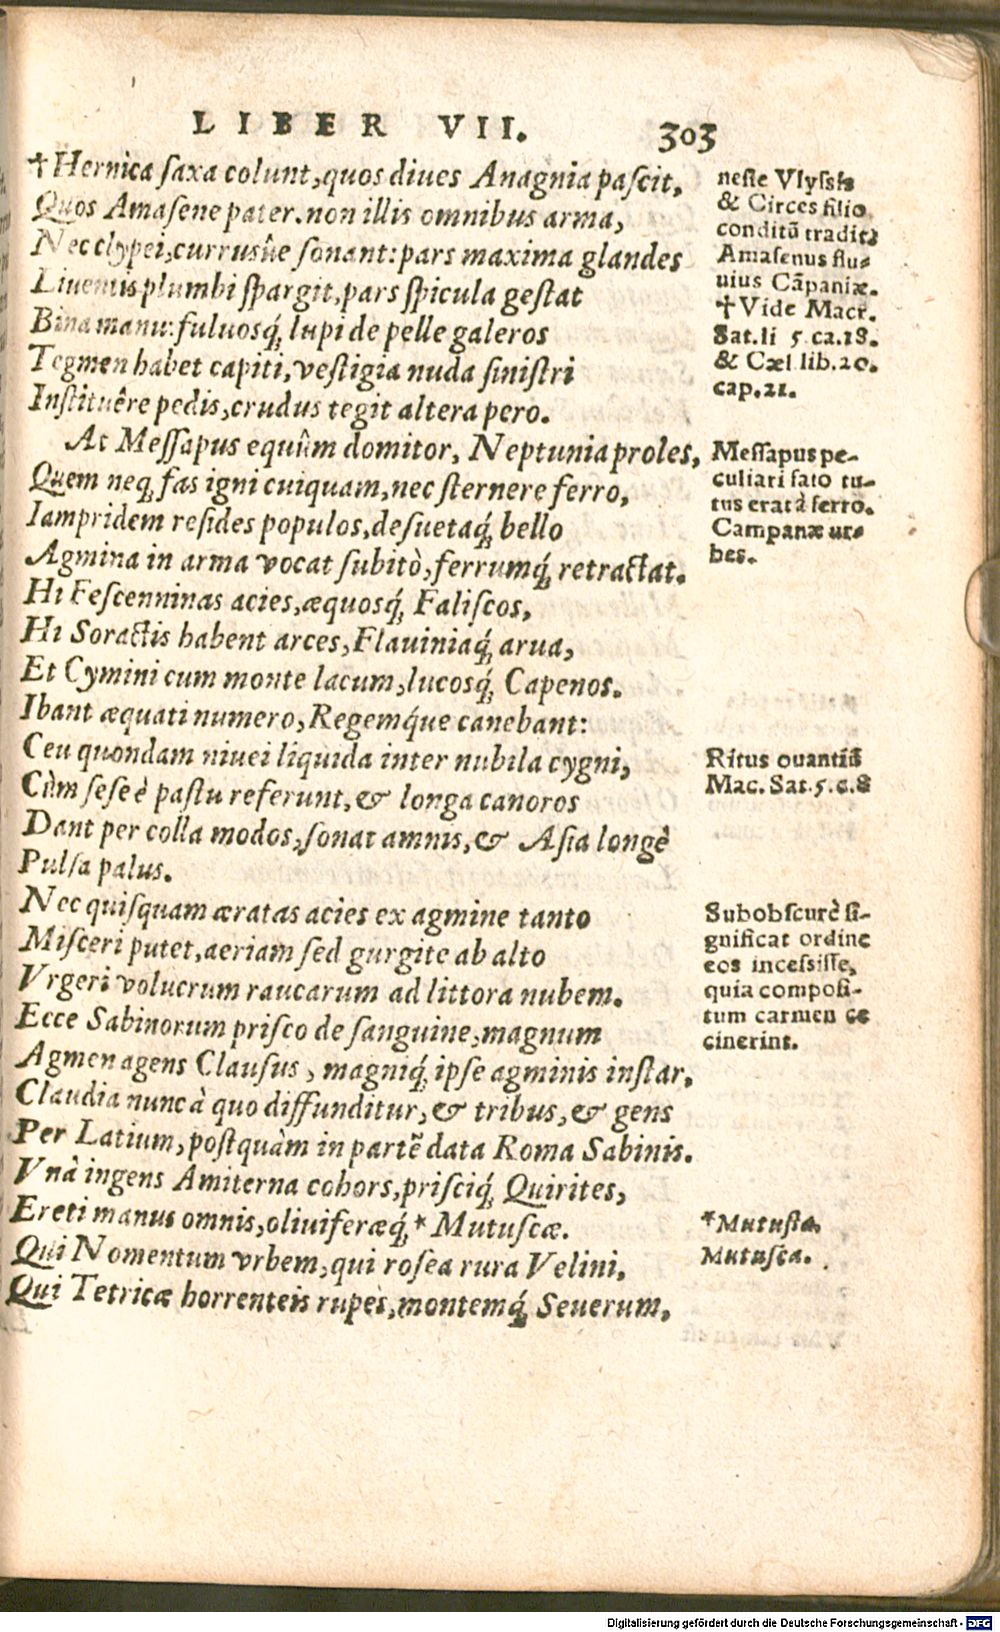 LIBER VII. 303
†Hernica saxa colunt, quos diues Anagnia pascit,
Quos Amasene pater. non illis omnibus arma,
Nec clypei, currusûe sonant: pars maxima glandes
Liuentis plumbi spargit, pars spicula gestat
Bina manu: fuluosq́; lupi de pelle galeros
Tegmen habet capiti, vestigia nuda sinistri
Instituêre pedis, crudus tegit altera pero.
At Messapus equûm domitor, Neptunia proles,
Quem neq; fas igni cuiquam, nec sternere ferro,
Iampridem resides populos, desuetaq́; bello
Agmina in arma vocat subitò, ferrumq́; retractat.
Hi Fescenninas acies, æquosq́; Faliscos,
Hi Soractis habent arces, Flauiniaq́; arua,
Et Cymini cum monte lacum, lucosq́; Capenos.
Ibant æquati numero, Regemq́ue canebant:
Ceu quondam niuei liquida inter nubila cygni,
Cùm sese è pastu referunt, & longa canoros
Dant per colla modos, sonat amnis, & Asia longè
Pulsa palus.
Nec quisquam æratas acies ex agmine tanto
Misceri putet, aeriam sed gurgite ab alto
Vrgeri volucrum raucarum ad littora nubem.
Ecce Sabinorum prisco de sanguine, magnum
Agmen agens Clausus, magniq́; ipse agminis instar,
Claudia nunc à quo diffunditur, & tribus, & gens
Per Latium, postquàm in partẽ data Roma Sabinis.
Vnà ingens Amiterna cohors, prisciq́; Quirites,
Ereti manus omnis, oliuiferæq́; * Mutuscæ.
Qui Nomentum vrbem, qui rosea rura Velini,
Qui Tetricæ horrenteis rupes, montemq́; Seuerum,
neste Vlyssis
& Circes filio
conditũ tradit;
Amasenus flu-
uius Cãpaniæ.
†Vide Macr.
Sat. li 5 ca. 18.
& Cæl lib. 20.
cap. 21.
Messapus pe-
culiari fato tu-
tus erat à ferro.
Campanæ ur-
bes.
Ritus ouantiũ
Mac. Sat. 5. c. 8
Subobscurè si-
gnificat ordine
eos incessisse,
quia composi-
tum carmen ce
cinerint.
*Mutustæ,
Mutusca.
Digitalisierung gefördert durch die Deutsche Forschungsgemeinschaft - DFG